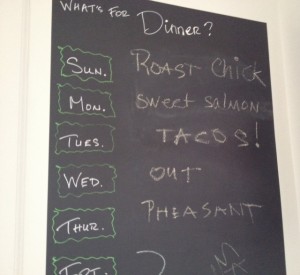 WHAT'S FOR
Dinner?
SUN. ROAST CHICK
MON. SWEET SALMON
TUES. TACOS!
WED. OUT
THUR. PHEASANT